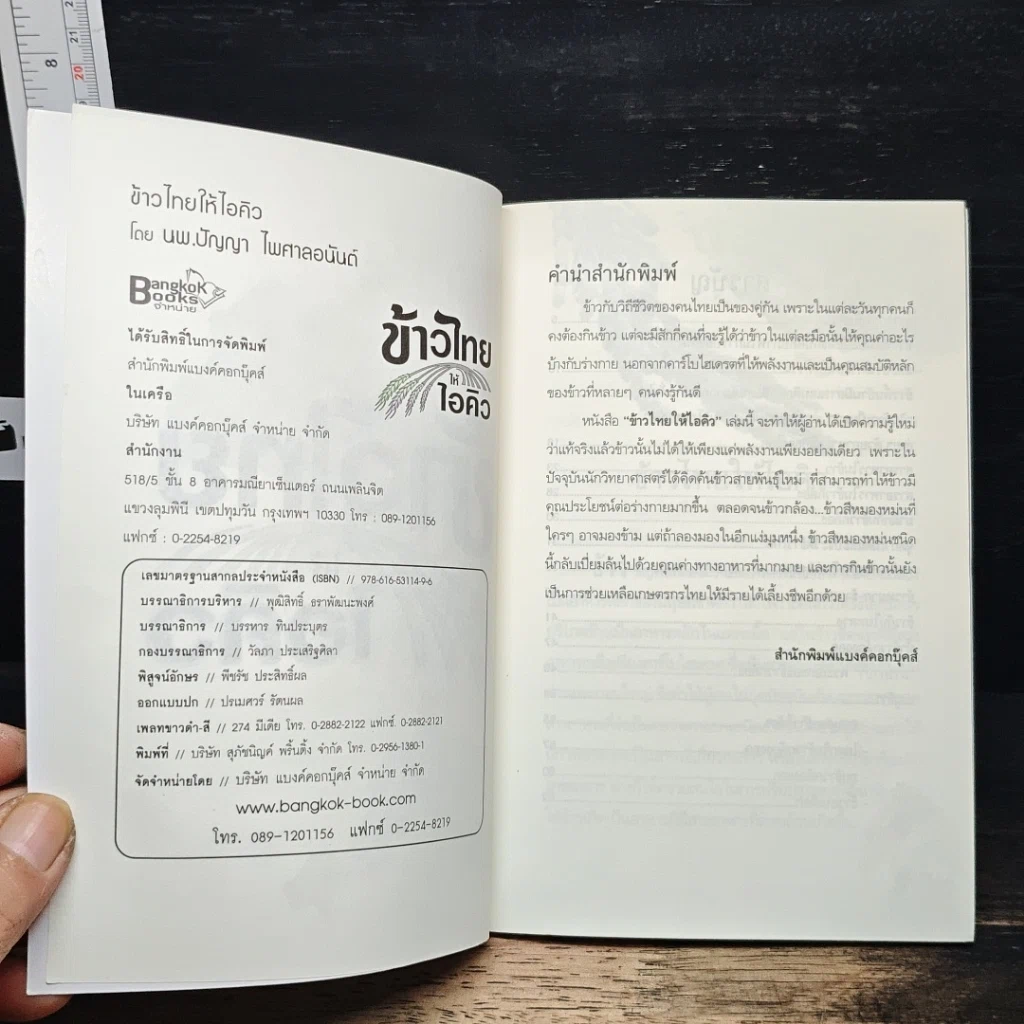 8
20
21
ข้าวไทยให้ไอคิว
โดย นพ.ปัญญา ไพศาลอนันต์
Bangkok
Books
จำหน่าย
ข้าวไทย
ให้
ไอคิว
ได้รับสิทธิ์ในการจัดพิมพ์
สำนักพิมพ์แบงค์คอกบุ๊คส์
ในเครือ
บริษัท แบงค์คอกบุ๊คส์ จำหน่าย จำกัด
สำนักงาน
518/5 ชั้น 8 อาคารมณียาเซ็นเตอร์ ถนนเพลินจิต
แขวงลุมพินี เขตปทุมวัน กรุงเทพฯ 10330 โทร : 089-1201156
แฟกซ์ : 0-2254-8219
เลขมาตรฐานสากลประจำหนังสือ (ISBN) // 978-616-53114-9-6
บรรณาธิการบริหาร // พุฒิสิทธิ์ ธราพัฒนะพงศ์
บรรณาธิการ // บรรหาร ทินประบุตร
กองบรรณาธิการ // วัลภา ประเสริฐศิลา
พิสูจน์อักษร // พีชรัช ประสิทธิ์ผล
ออกแบบปก // ปรเมศวร์ รัตนผล
เพลทขาวดำ-สี // 274 มีเดีย โทร. 0-2882-2122 แฟกซ์. 0-2882-2121
พิมพ์ที่ // บริษัท สุภัชนิญค์ พริ้นติ้ง จำกัด โทร. 0-2956-1380-1
จัดจำหน่ายโดย // บริษัท แบงค์คอกบุ๊คส์ จำหน่าย จำกัด
www.bangkok-book.com
โทร. 089-1201156 แฟกซ์ 0-2254-8219
คำนำสำนักพิมพ์
ข้าวกับวิถีชีวิตของคนไทยเป็นของคู่กัน เพราะในแต่ละวันทุกคนก็
คงต้องกินข้าว แต่จะมีสักกี่คนที่จะรู้ได้ว่าข้าวในแต่ละมือนั้นให้คุณค่าอะไร
บ้างกับร่างกาย นอกจากคาร์โบไฮเดรตที่ให้พลังงานและเป็นคุณสมบัติหลัก
ของข้าวที่หลายๆ คนคงรู้กันดี
หนังสือ “ข้าวไทยให้ไอคิว” เล่มนี้ จะทำให้ผู้อ่านได้เปิดความรู้ใหม่
ว่าแท้จริงแล้วข้าวนั้นไม่ได้ให้เพียงแค่พลังงานเพียงอย่างเดียว เพราะใน
ปัจจุบันนักวิทยาศาสตร์ได้คิดค้นข้าวสายพันธุ์ใหม่ ที่สามารถทำให้ข้าวมี
คุณประโยชน์ต่อร่างกายมากขึ้น ตลอดจนข้าวกล้อง...ข้าวสีหมองหม่นที่
ใครๆ อาจมองข้าม แต่ถ้าลองมองในอีกแง่มุมหนึ่ง ข้าวสีหมองหม่นชนิด
นี้กลับเปี่ยมล้นไปด้วยคุณค่างทางอาหารที่มากมาย และการกินข้าวนั้นยัง
เป็นการช่วยเหลือเกษตรกรไทยให้มีรายได้เลี้ยงชีพอีกด้วย
สำนักพิมพ์แบงค์คอกบุ๊คส์